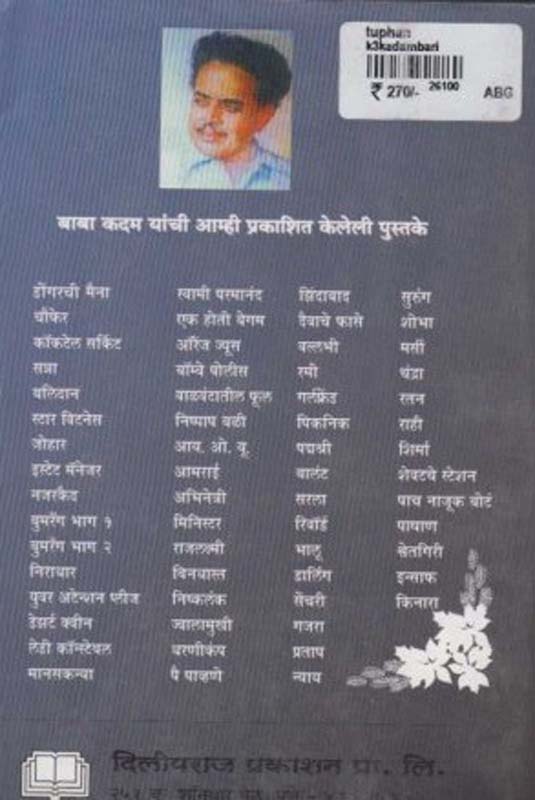 tuphan
k3kadambari
₹ 270/- 26100 ABG
बाबा कदम यांची आम्ही प्रकाशित केलेली पुस्तके
डोंगरची मैना स्वामी परमानंद झिंदाबाद सुरुंग
चौफेर एक होती बेगम दैवाचे फासे शोभा
कॉकटेल सर्किट ऑरेंज ज्यूस वल्लभी मर्सी
सत्रा बॉम्बे पोलीस रमी चंद्रा
बलिदान वाळवंटातील फूल गर्लफ्रेंड रतन
स्टार विटनेस निष्पाप बळी पिकनिक राही
जोहार आय. ओ. यू. पद्मश्री शिर्मा
इस्टेट मॅनेजर आमराई वारंट शेवटचे स्टेशन
नजरकैद अभिनेत्री सरला पाच नाजूक बोटं
बुमरँग भाग १ मिनिस्टर रिवॉर्ड पाषाण
बुमरँग भाग २ राजलक्ष्मी भालू खेतगिरी
निराधार बिनधास्त डार्लिंग इन्साफ
युवर अटेन्शन प्लीज निष्कलंक सेंचरी किनारा
डेझर्ट क्वीन ज्वालामुखी गजरा
लेडी कॉन्स्टेबल धरणीकंप प्रताप
मानसकन्या पै पाव्हणे न्याय
दिलीपराज प्रकाशन प्रा. लि.